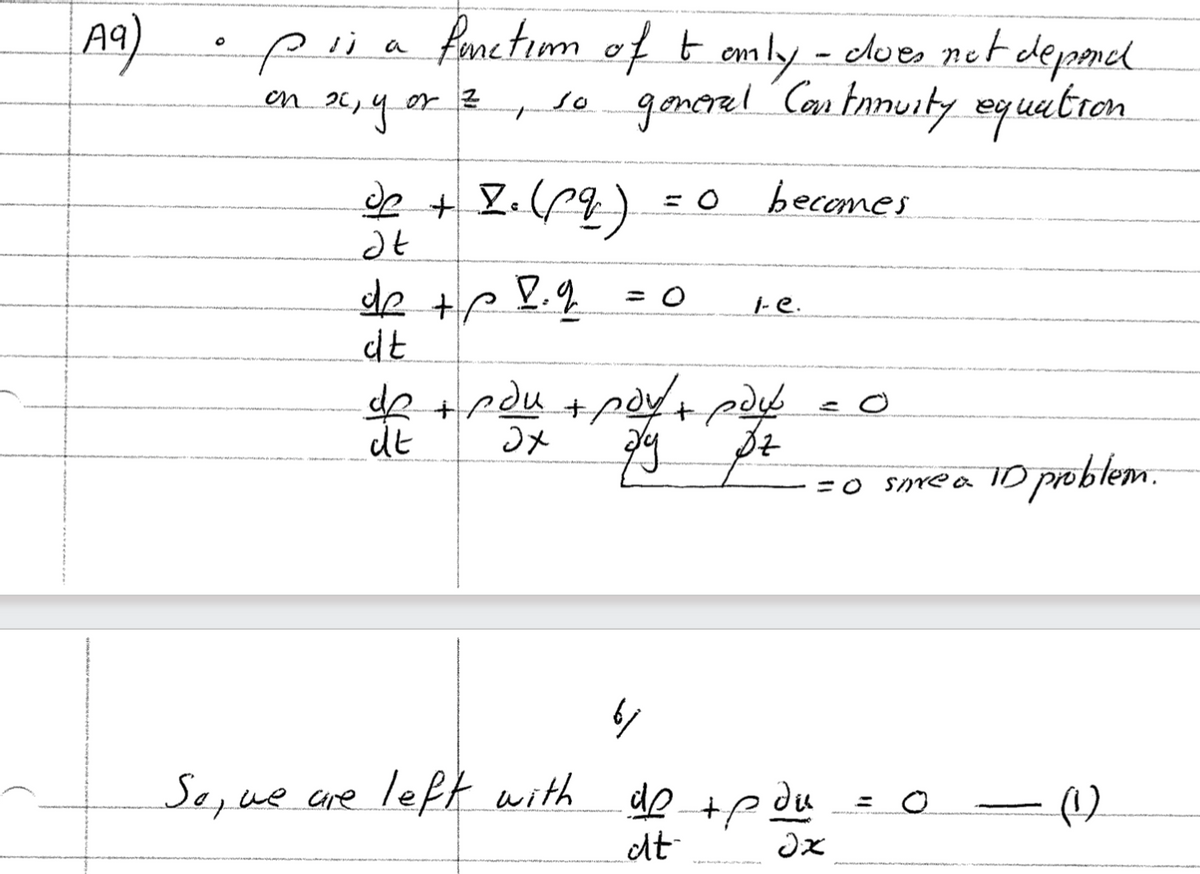 A9) • ρ is a function of t only - does not depend
on x, y or z , so general Continuity equation
∂ρ/∂t + ∇.(ρq) = 0 becomes
dρ/dt + ρ ∇.q = 0 i.e.
dρ/dt + ρ∂u/∂x + ρ∂v/∂y + ρ∂w/∂z = 0
= 0 since a 1D problem.
6/
So, we are left with dρ/dt + ρ ∂u/∂x = 0 — (1)